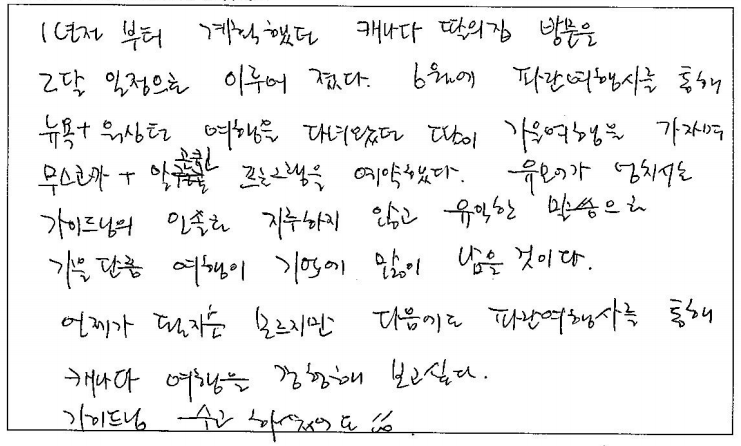 1년전 부터 계획했던 캐나다 딸의집 방문을
2달 일정으로 이루어 졌다. 6월에 파란여행사를 통해
뉴욕+워싱턴 여행을 다녀왔던 딸이 가을여행을 가자며
무스코카 + 알곤퀸 프로그램을 예약했다. 유모어가 넘치시는
가이드님의 인솔로 지루하지 않고 유익한 말씀으로
가을 단풍 여행이 기억에 많이 남을 것이다.
언제가 될지는 모르지만 다음에도 파란여행사를 통해
캐나다 여행을 경험해 보고싶다.
가이드님 수고 하셨어요